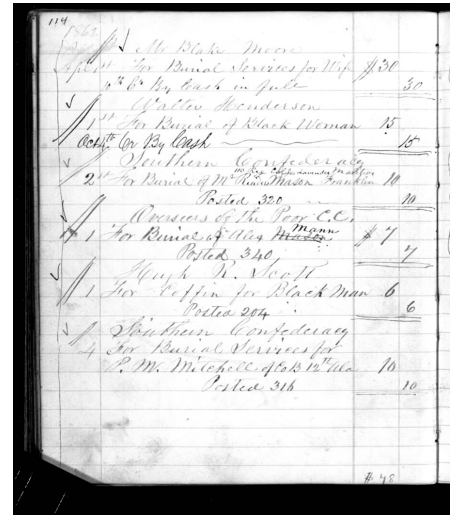 114
1862
Mr Blake Moore
Apr 1st For Burial Services for Wife $30
4th Cr By Cash in full 30
Walter Henderson
1st For Burial of Black Woman 15
Oct 4th Cr By Cash 15
Southern Confederacy
2nd For Burial of Mr Mason Franklin 10
Posted 320 10
Overseers of the Poor C.C.
1 For Burial of Alex Mason Mann $7
Posted 340 7
Hugh N. Scott
1 For Coffin for Black Man 6
Posted 204 6
Southern Confederacy
4 For Burial Services for
P. M. Mitchell of Co B 12th Ala 10
Posted 316 10
$78